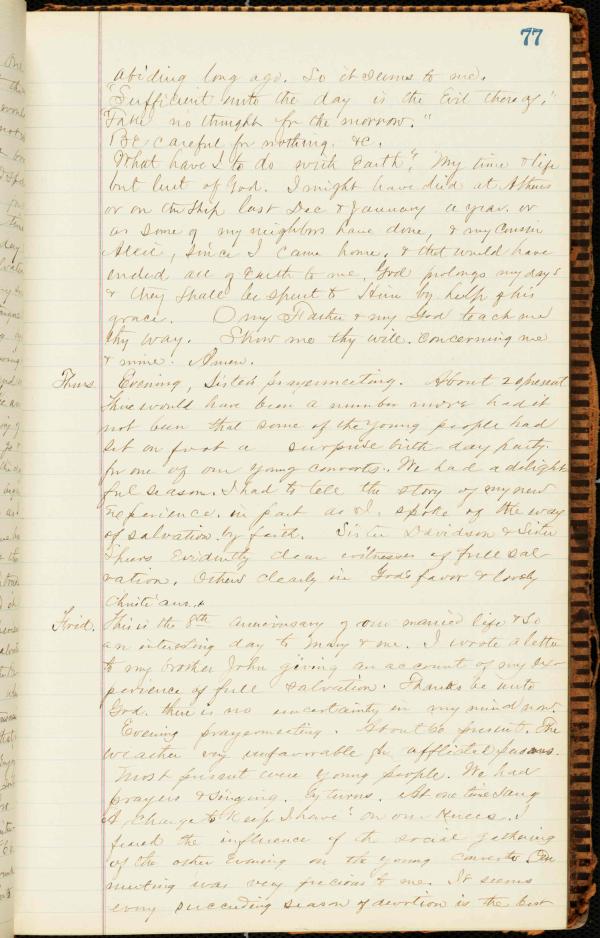 77
abiding long ago. So it seems to me.
"Sufficient unto the day is the Evil thereof,"
"Take no thought for the morrow."
Be careful for nothing. &c.
What have I to do with Earth", My time & life
but lent of God. I might have died at Athens
or on the Ship last Dec & January a year. or
as some of my neighbors have done, & my cousin
since I came home, & that would have
ended all of Earth to me God prolongs my days
& they shall be spent to Him by help of his
grace. O my Father & my God teach me
thy way. Show me thy will. Concerning me
& mine. Amen.
Thurs Evening, Sisters prayermeeting. About 20 present
There would have been a number more had it
not been that some of the young people had
set on foot a surprise birth-day party.
for one of our young converts. We had a delight
ful season. I had to tell the story of my new
Experience. in part as I. spoke of the way
of salvation by faith. Sister Davidson & Sister
Evidently clear witnesses of full sal
vation. Others clearly in God's favor & lovely
Christians.
Frid. This is the 8th anniversary of our married life & So
an interesting day to Mary & me. I wrote a letter
to my brother John giving an account of my ex
perience of full salvation. Thanks be unto
God. there is no uncertainty in my mind now.
Evening prayermeeting. About 60 present. The
weather very unfavorable for afflicted persons.
Most present were young people. We had
prayers & singing. By turns. At one time Sang
"A charge to keep I have" on our Knees. I
feared the influence of the social gathering
of the other Evening on the young converts Our
meeting was very precious to me. It seems
every succeeding season of devotion is the best